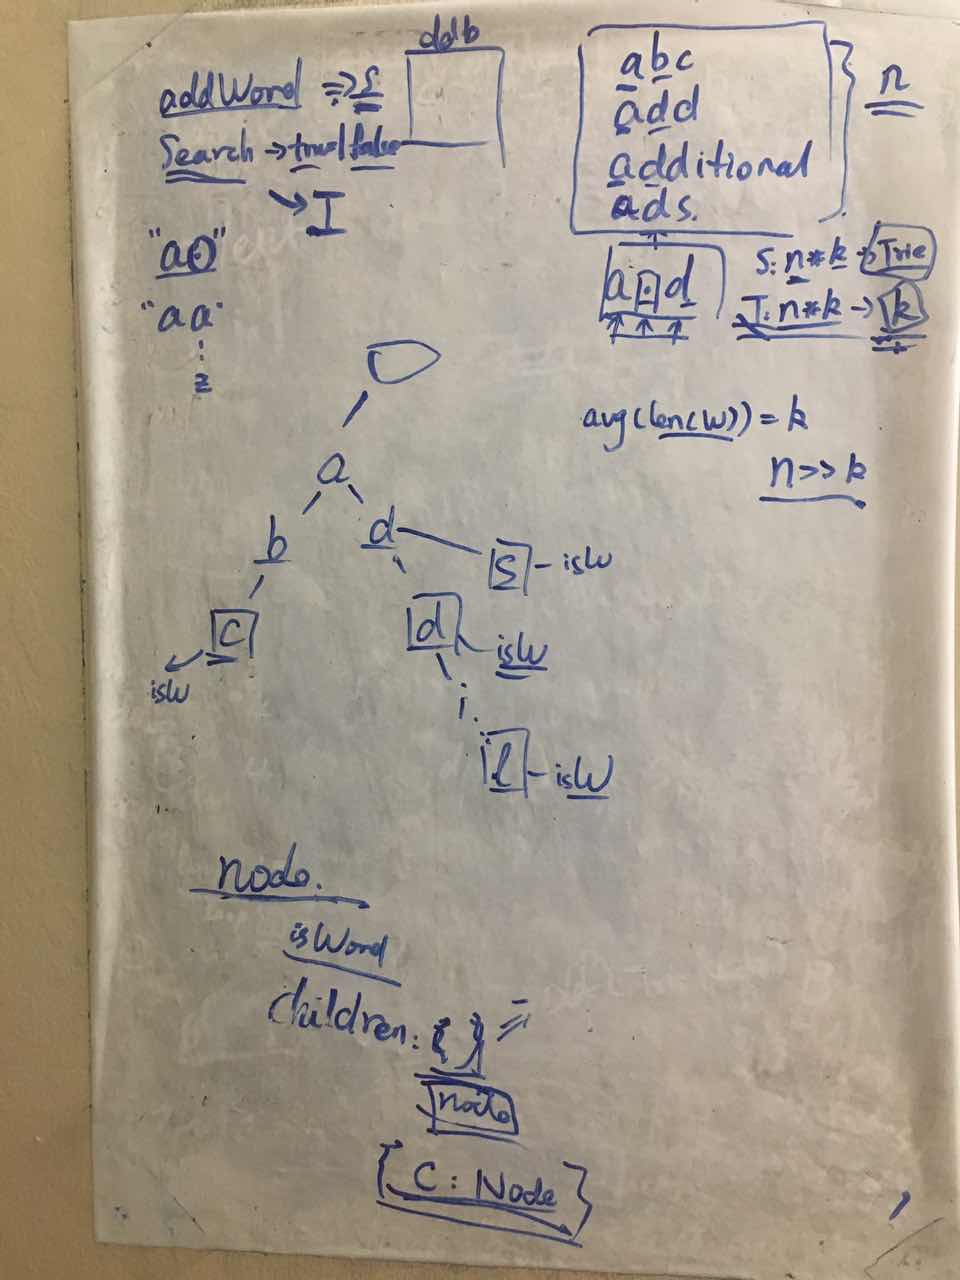 addWord => S
Search -> true/false
-> I
"a0"
"aa"
z
abc
add
additional
ads.
n
a . d
S: n*k -> Trie
T: n*k -> k
avg(len(w)) = k
n >> k
a
b d
S - isW
c d
isW isW
i
l - isW
node.
isWord
children: { }
node
{ C : Node }